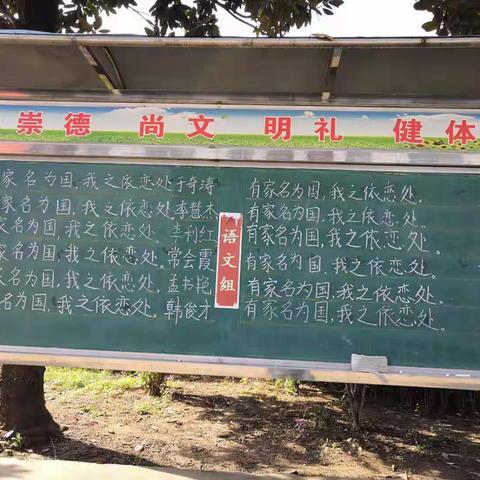 崇德 尚文 明礼 健体
家名为国,我之依恋处 于奇涛
家名为国,我之依恋处 李慧杰
家名为国,我之依恋处 李利红
家名为国,我之依恋处。 常会霞
家名为国,我之依恋处。 孟书艳
名为国,我之依恋处。 韩俊才
语文组
有家名为国,我之依恋处.
有家名为国,我之依恋处。
有家名为国,我之依恋处。
有家名为国,我之依恋处。
有家名为国,我之依恋处.
有家名为国,我之依恋处。